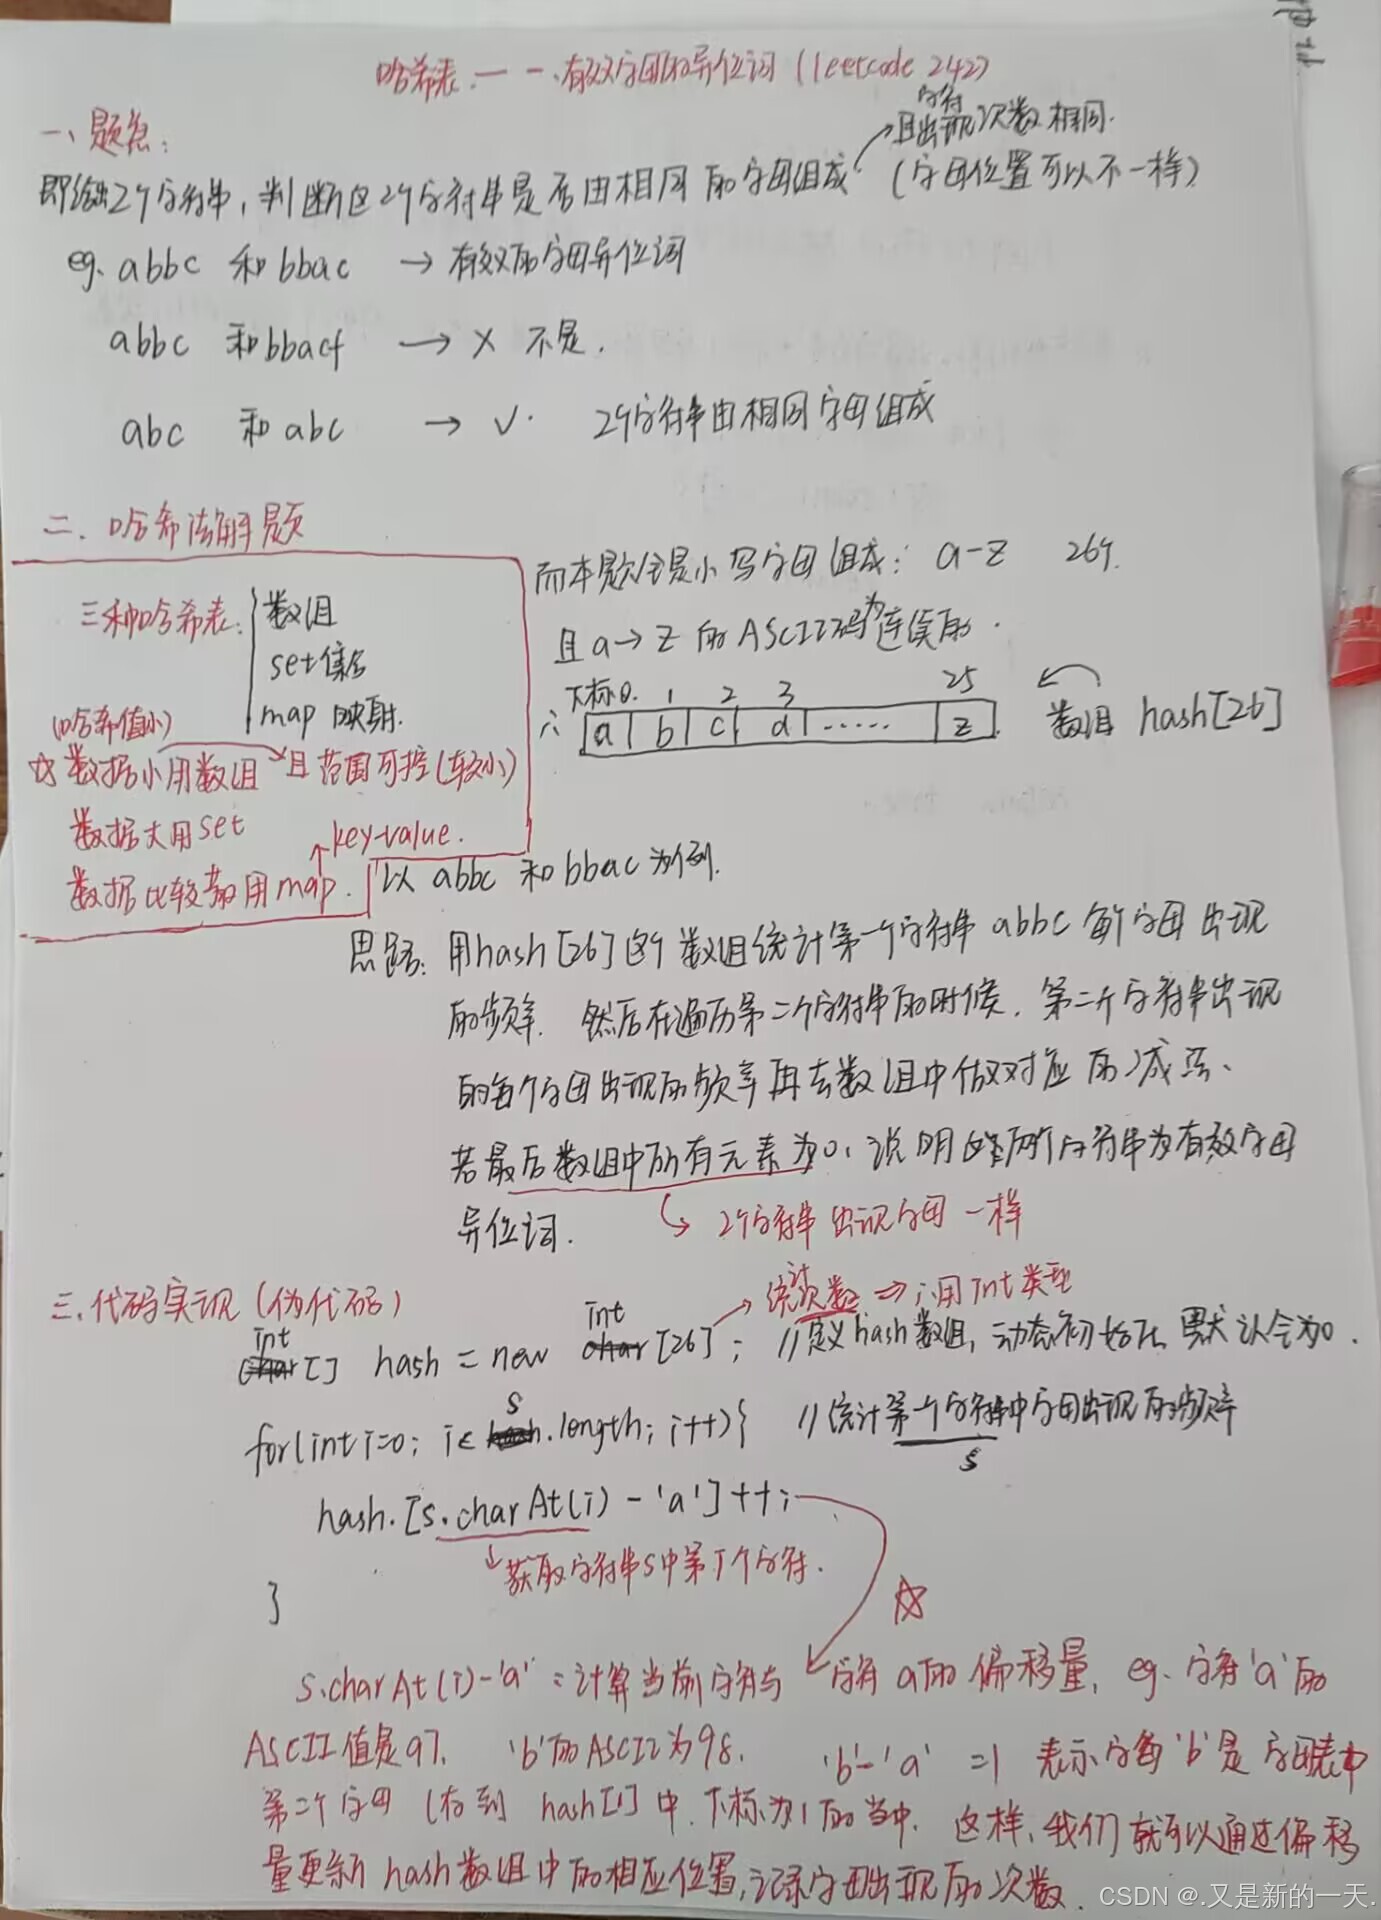 哈希表——一、有效字母的异位词 (leetcode 242)
一、题意:
字符
且出现次数相同.
即给出2个字符串,判断这2个字符串是否由相同的字母组成 (字母位置可以不一样)
eg. abbc 和 bbac → 有效的字母异位词
abbc 和 bbacf → X 不是.
abc 和 abc → √. 2个字符串由相同字母组成
二、哈希法解题
三种哈希表: 数组
set集合
map 映射.
(哈希值小)
☆ 数据小用数组 且范围可控(较小)
数据大用set
key-value.
数据比较散用map.
而本题全是小写字母组成: a-z 26个.
且 a→z 的ASCII码为连续的.
下标0. 1 2 3 25
∴ a b c d ...... z 数组 hash[26]
以 abbc 和 bbac 为例.
思路: 用hash[26]这个数组统计第一个字符串 abbc 每个字母出现
的频率. 然后在遍历第二个字符串的时候, 第二个字符串出现
的每个字母出现的频率再去数组中做对应的减法、
若最后数组中所有元素为0, 说明这两个字符串为有效字母
异位词.
2个字符串出现字母一样
三.代码实现(伪代码)
统计次数 => ∴用int类型
int[] hash = new int[26]; //定义hash数组, 动态初始化 默认全为0.
for(int i=0; i< s.length; i++){ //统计第一个字符串中字母出现的频率
s
hash.[s.charAt(i) - 'a']++;
获取字符串s中第i个字符.
}
☆
s.charAt(i)-'a' = 计算当前字符与字符a的偏移量, eg. 字符'a'的
ASCII值是97, 'b'的ASCII为98. 'b'-'a' =1 表示字母'b'是字母表中
第二个字母 (存到 hash[1]中, 下标为1的当中. 这样, 我们就可以通过偏移
量更新hash数组中的相应位置,记录字母出现的次数.
CSDN @.又是新的一天.